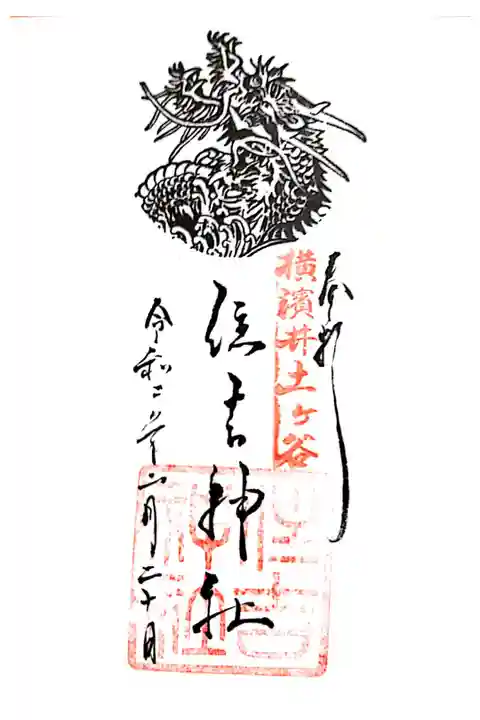 奉拝
横濱井土ケ谷
住吉神社
令和二年六月二十日
住吉神社